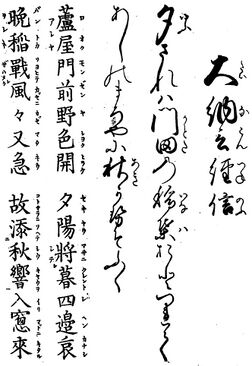 大納言経信
夕されハ門田の稲葉おとつれて
あしのまろやに秋かせそふく
蘆屋門前野色開 夕陽將暮四邊哀
晩稻戰風々又急 故添秋響入窻來